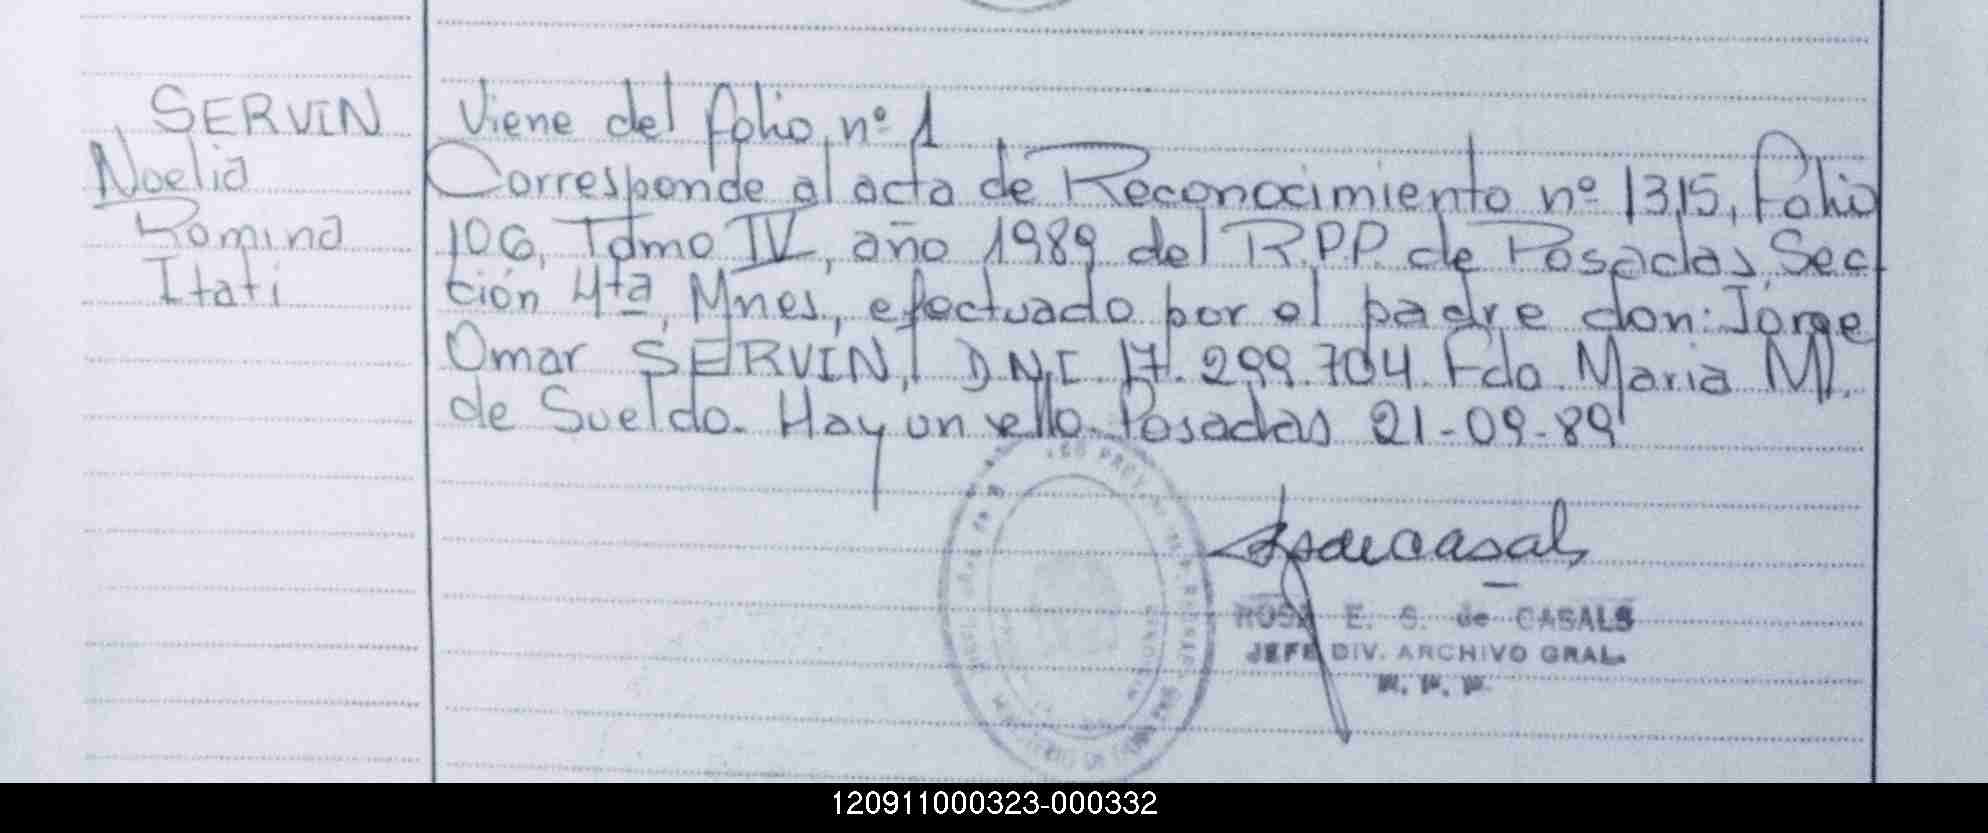 SERVIN
Noelia
Romina
Itati
Viene del folio nº 1
Corresponde al acta de Reconocimiento nº 1315, folio
106, Tomo IV, año 1989 del R.P.P. de Posadas, Sec
ción 4ta, Mnes, efectuado por el padre don: Jorge
Omar SERVIN, DNI 17.299.704. Fdo. Maria M.
de Sueldo. Hay un sello. Posadas 21-09-89
ROSA E. S. de CASALS
JEFE DIV. ARCHIVO GRAL.
120911000323-000332